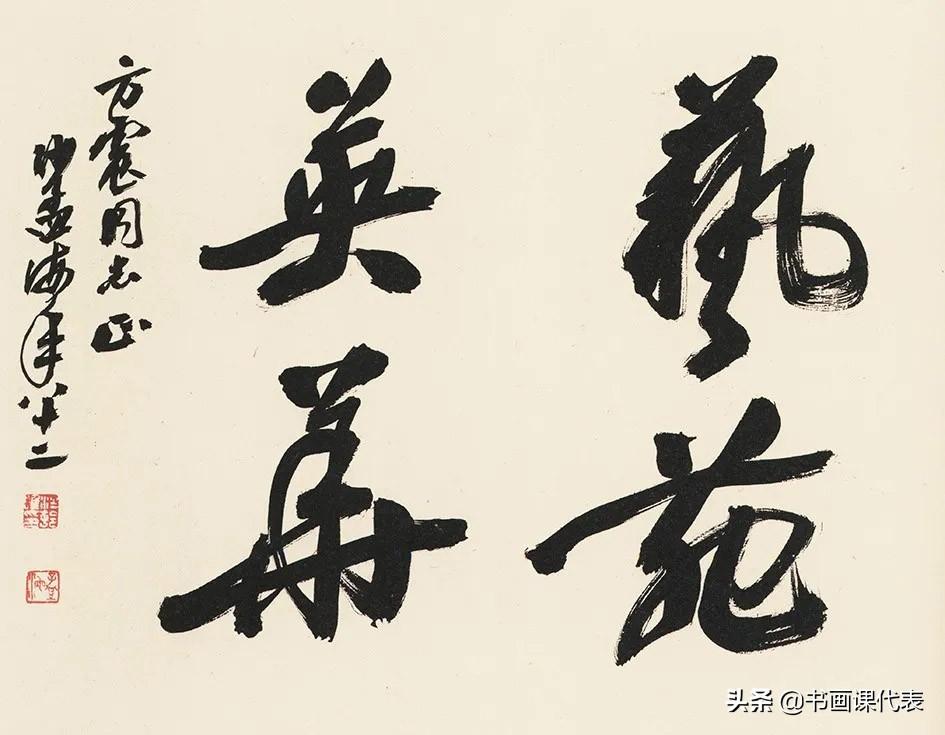 藝苑
英華
方震同志正
沙孟海年八十二
头条 @书画课代表